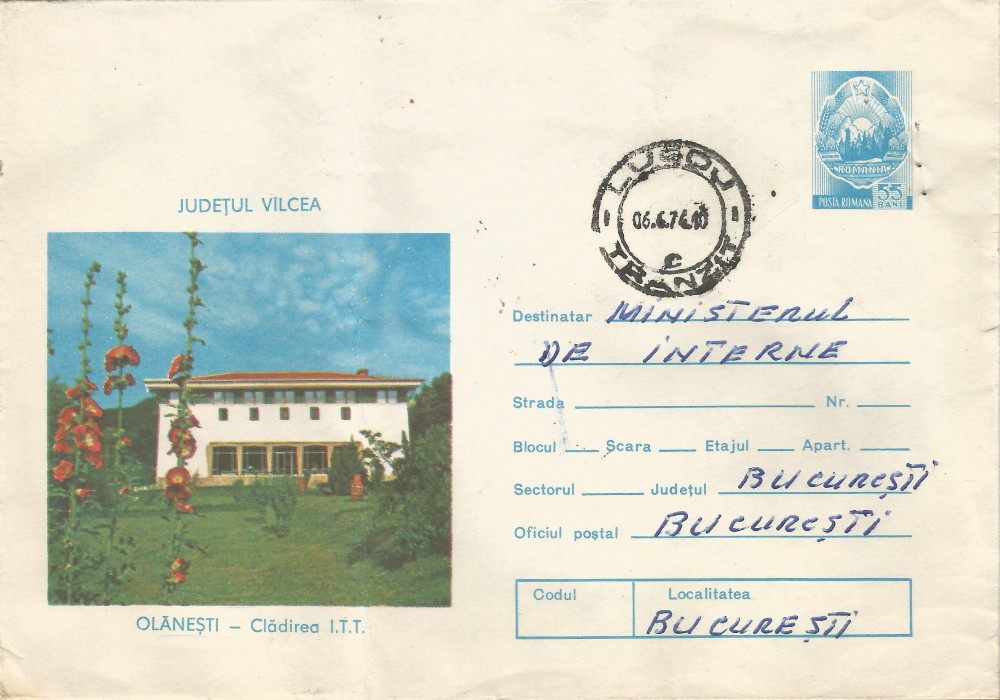 ROMANIA
POSTA ROMANA 55 BANI
LUGOJ
06.6.76.10
C
TRANZIT
JUDEȚUL VÎLCEA
OLĂNEȘTI – Clădirea I.T.T.
Destinatar MINISTERUL
DE INTERNE
Strada Nr.
Blocul Scara Etajul Apart.
Sectorul Județul BUCUREȘTI
Oficiul poștal BUCUREȘTI
Codul Localitatea
BUCUREȘTI